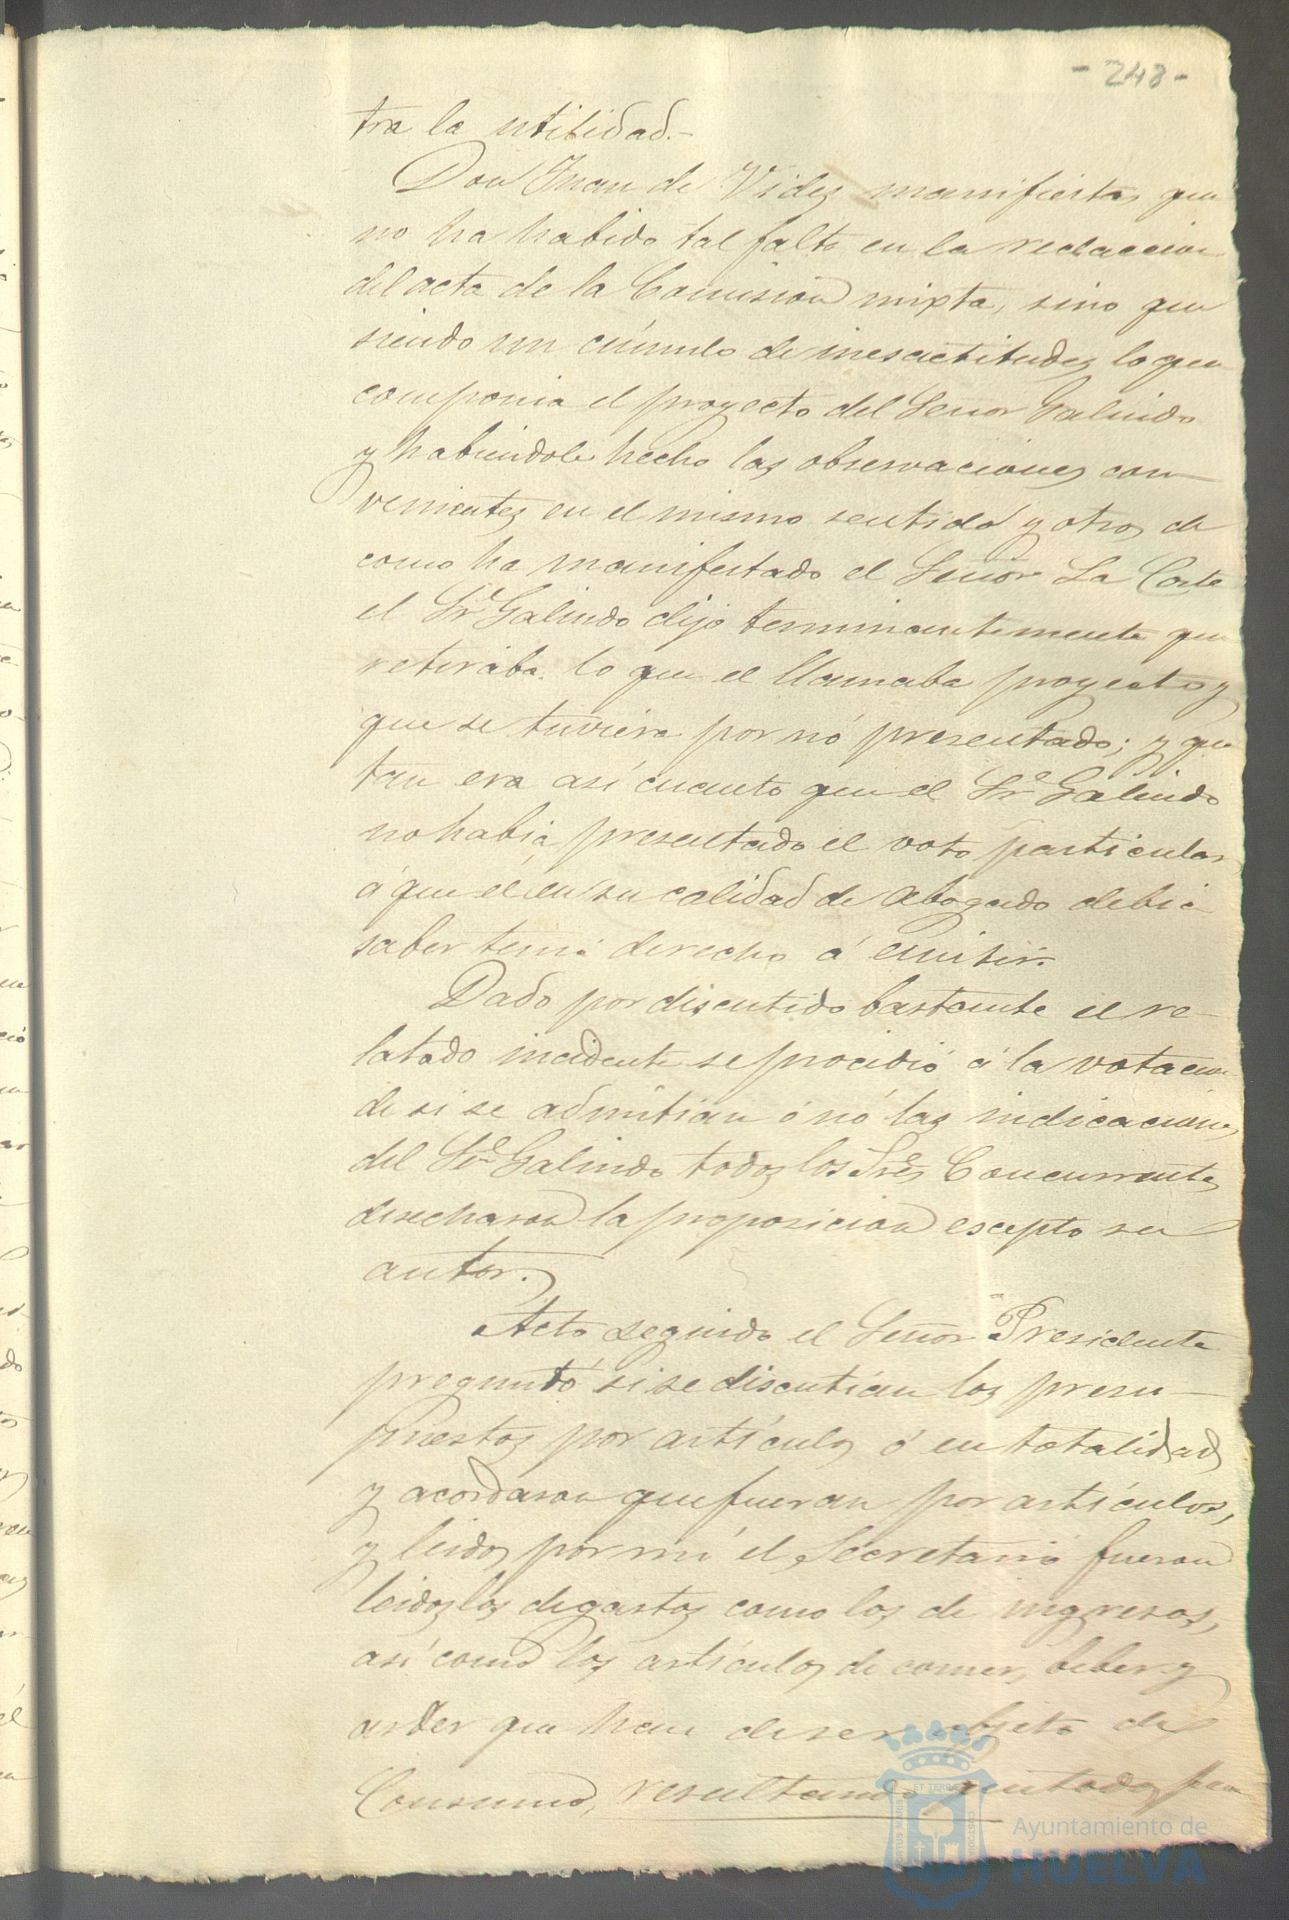 - 248 -
tra la utilidad.-
Don Juan de Vides manifiesta, que
no ha habido tal falta en la redaccion
del acta de la Comision mixta, sino que
siendo un cúmulo de inesactitudes lo que
componia el proyecto del Señor Galindo
y habiendole hecho las observaciones con-
venientes en el mismo sentido y otros de
como ha manifestado el Señor La Corte
el Sr. Galindo dijo terminantemente que
retiraba lo que el llamaba proyecto y
que se tuviera por nó presentado; y que
tan era así cuanto que el Sr. Galindo
no habia presentado el voto particular
á que el en su calidad de Abogado debia
saber tenia derecho á emitir.
Dado por discutido bastante el re-
latado incidente se procedió á la votacion
de si se admitian ó nó las indicaciones
del Sr. Galindo todos los Sres. Concurrentes
desecharon la proposicion escepto su
autor.
Acto seguido el Señor Presidente
preguntó si se discutian los presu-
puestos por artículos ó en totalidad
y acordaron que fueran por artículos,
y leidos por mí el Secretario fueron
leidos los de gastos como los de ingresos,
así como los artículos de comer, beber y
arder que han de ser objeto de
Consumo, resultando
Ayuntamiento de
HUELVA